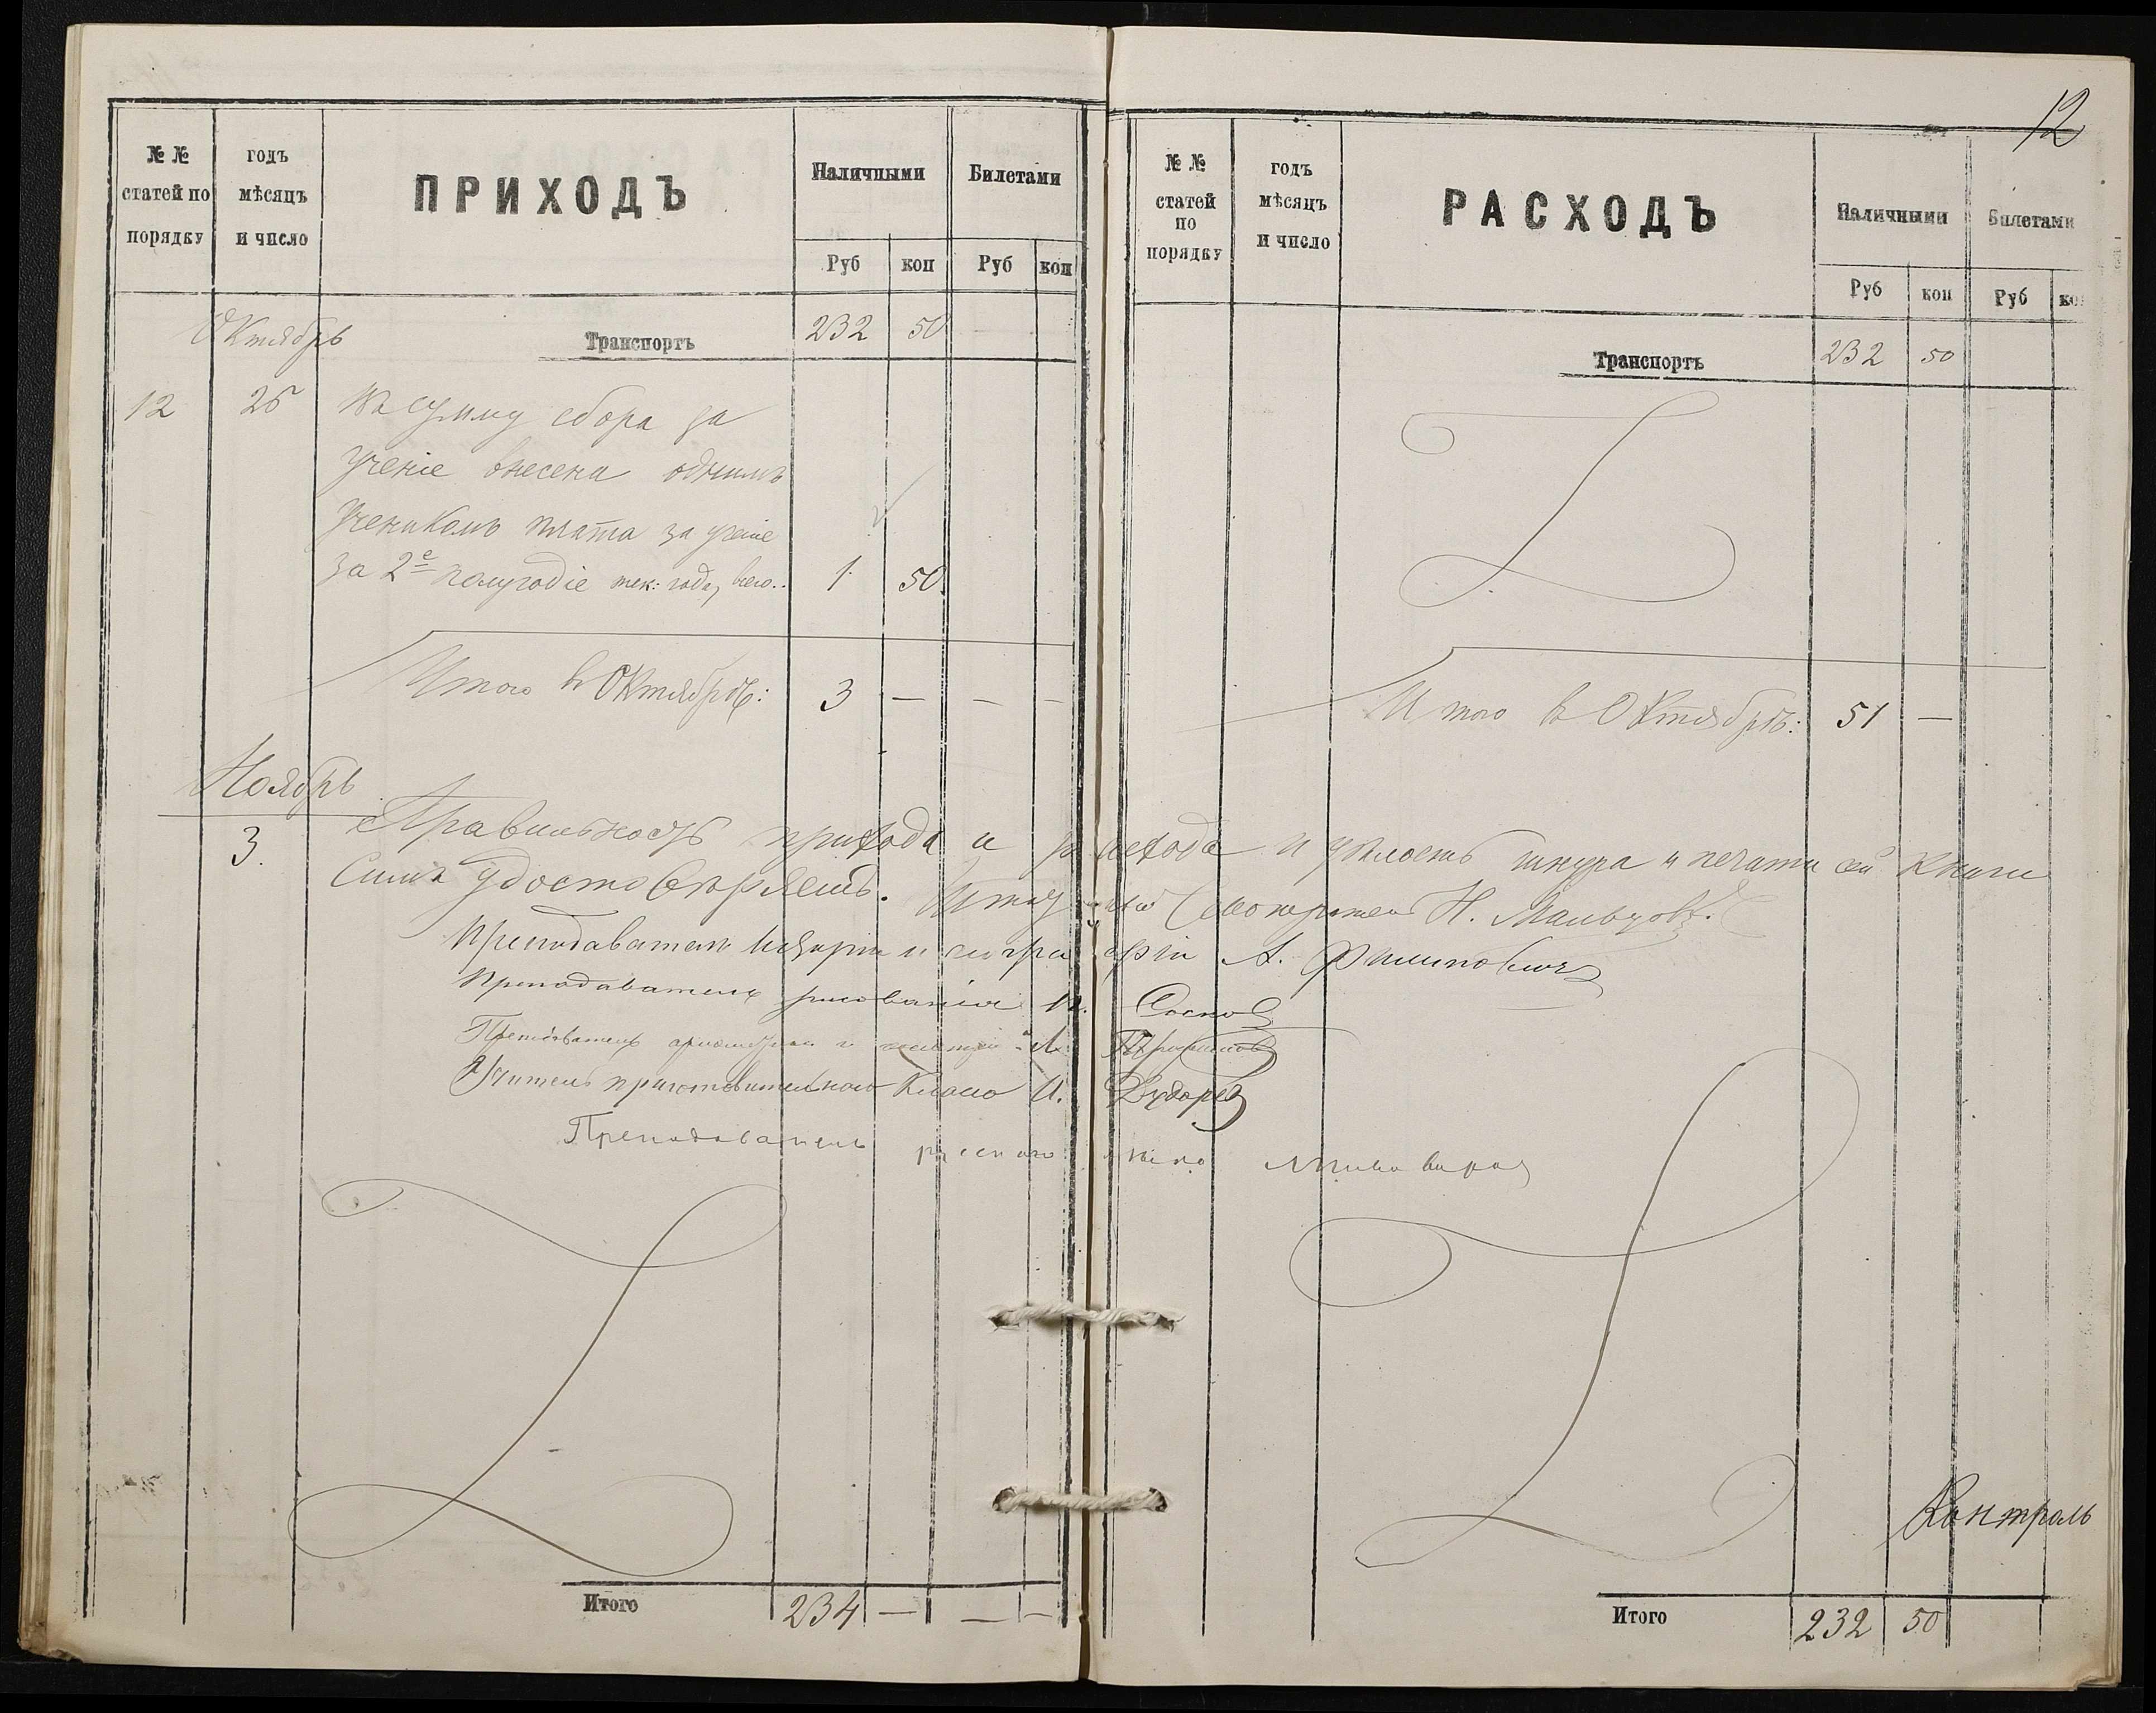 № №
статей по
порядку
годъ
мѣсяцъ
и число
ПРИХОДЪ
Наличными
Билетами
Руб
коп
Руб
коп
Октябрь
Транспортъ
232
50
12
26
На сумму сбора за
ученіе внесена однимъ
ученикомъ плата за ученіе
за 2е полугодіе тек: года, всего..
1
50.
Итого въ Октябрѣ:
3
—
—
—
Ноябрь
3.
Правильность прихода и расхода и цѣлость шнура и печати сей книги
Симъ удостовѣряемъ. Штатный Смотритель Н. Мальцовъ.
Преподаватель исторіи и географіи А. Филиповичъ
Преподаватель рисованія
Преподаватель ариѳметики и геометріи
Учитель приготовительного класса И. Дударев
Преподаватель русского языка
Итого
234
—
—
—
12
№ №
статей
по
порядку
годъ
мѣсяцъ
и число
РАСХОДЪ
Наличными
Билетами
Руб
коп
Руб
ко
Транспортъ
232
50
Итого въ Октябрѣ:
51
—
Контроль
Итого
232
50